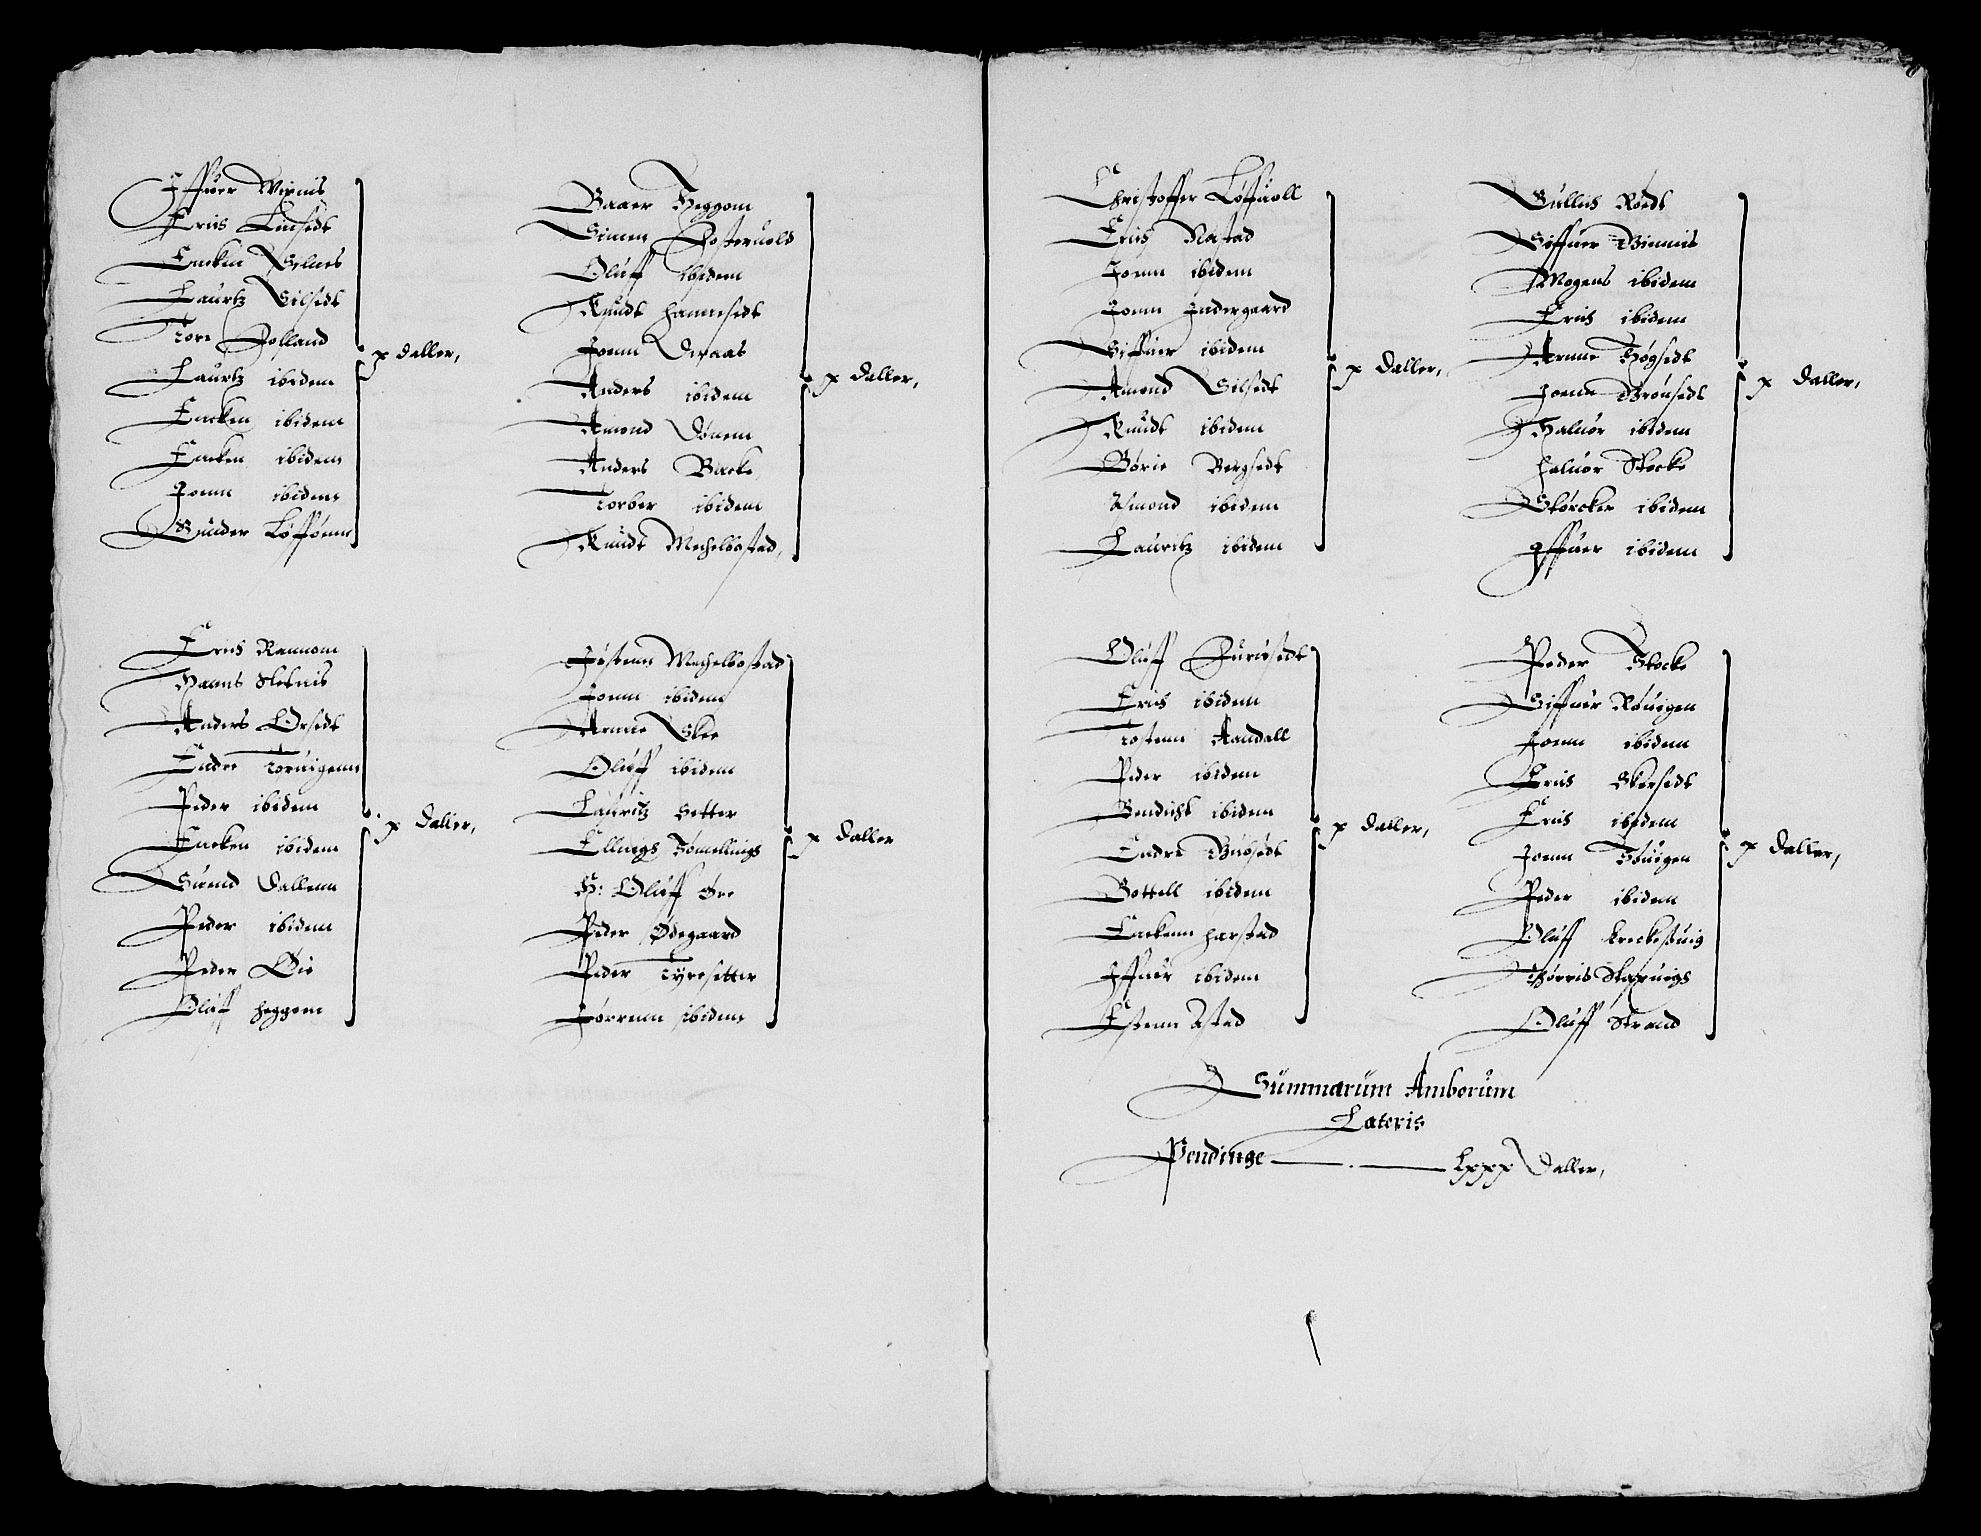 Iffuer Mirnis
Eriis Linsedt
Encken Selnes
Laurtz Silsedt
Tore Hofland
Laurtz ibidem
Encken ibidem
Encken ibidem
Joenn ibidem
Gunder Løffønn
x daller,
Baaer Heggom
Simen Hosteruold
Oluff ibidem
Knudt hannesedt
Joenn Deraas
Anders ibidem
Amond Dønem
Anders Backe
Torber ibidem
Knudt Mechelbostad,
x daller,
Eriis Rannom
Haans Slefnis
Anders Orsedt
Endre Toruigenn
Peder ibidem
Encken ibidem
Suend Dallenn
Peder ibidem
Peder Øie
Oluff heggem
x daller,
Jøstenn Mechelbostad
Joenn ibidem
Arnne Skee
Oluff ibidem
Lauritz Setter
Ellings Tømellings
H: Oluff Øre
Peder Ødegaard
Peder Tyresetter
Jørrenn ibidem
x daller
Christoffer Løfuoll
Eriis Nastad
Joenn ibidem
Joenn Indergaard
Siffuer ibidem
Amond Silsedt
Knudt ibidem
Børie Bergsedt
Asmond ibidem
Lauritz ibidem
x daller,
Gulleis Roedt
Siffuer Binnis
Mogens ibidem
Eriis ibidem
Arnne Høgsedt
Joenn Brønsedt
Haluor ibidem
haluor Stocke
Størcker ibidem
Iffuer ibidem
x daller,
Oluff Furresedt
Eriis ibidem
Tostenn Aandall
Peder ibidem
Bendicht ibidem
Endre Budsedt
Bottell ibidem
Enckenn harstad
Iffuer ibidem
Estenn Astad
x daller,
Peder Stocke
Siffuer Røuigen
Joenn ibidem
Eriis Skørsedt
Eriis ibidem
Joenn Høuigen
Peder ibidem
Oluff kreckesuiig
Thørris Skaruigs
Oluff Strand
x daller,
Summarum Amborum
Lateris
Pendinge — . — lxxx Daller,